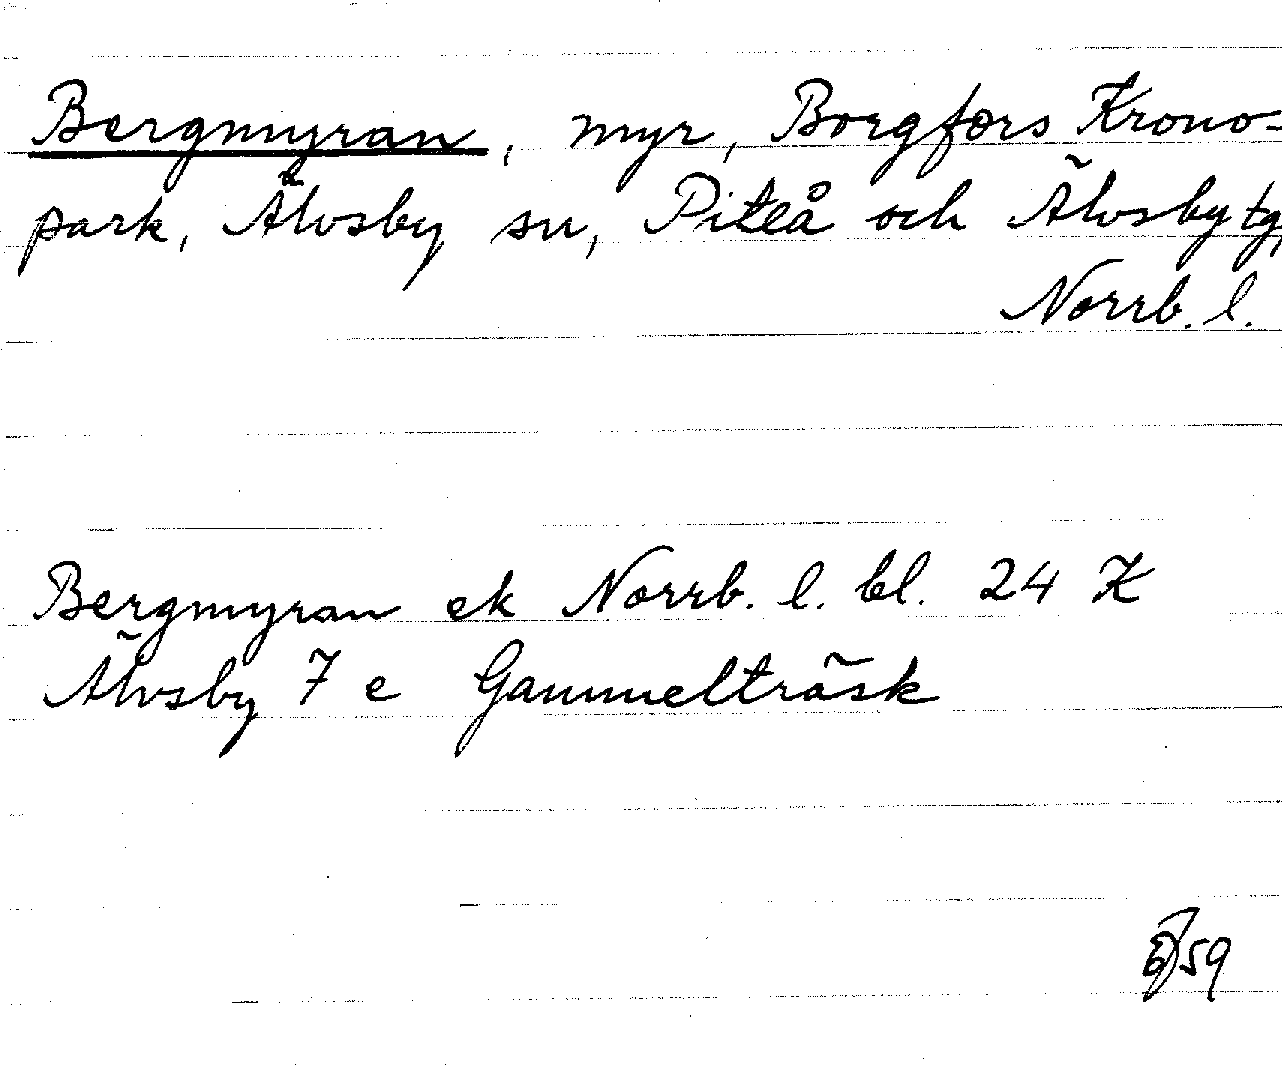 Bergmyran, myr, Borgfors Krono-
park, Älvsby sn, Piteå och Älvsby tg,
Norrb. l.
Bergmyran ek Norrb. l. bl. 24 K
Älvsby 7 e Gammelträsk
59